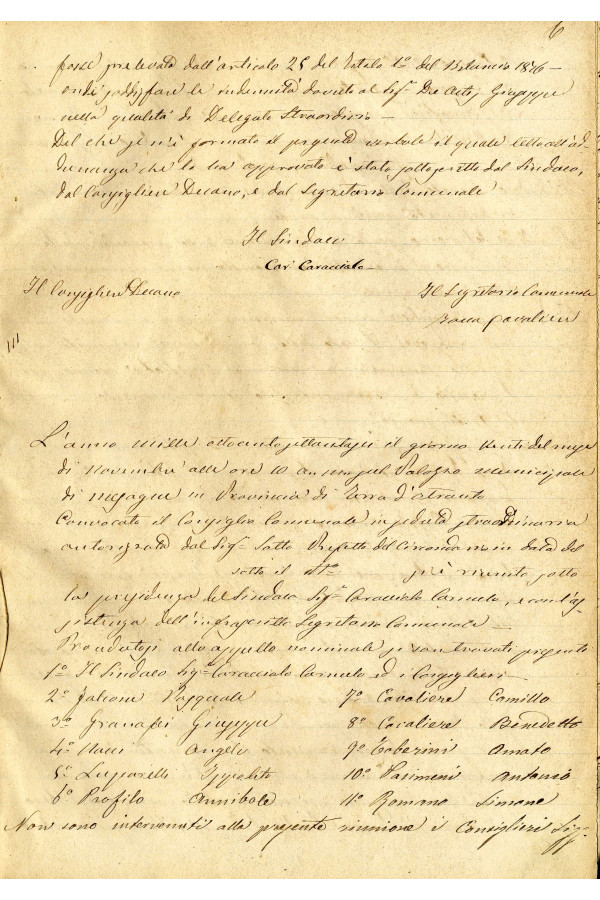 6
fosse prelevata dall'articolo 25 del Totolo 1º del Bilancio 1876—
onde soddisfare le indennità dovute al Sig.r De Giuseppe
nella qualità di Delegato Straordinario—
Del che si è formato il presente verbale il quale letto all'ad-
dunanza che lo ha approvato è stato sottoscritto dal Sindaco,
dal Consigliere Decano, e dal Segretario Comunale
Il Sindaco
Cav. Caracciolo—
Il Consigliere Decano
Il Segretario Comunale
Cavaliere
L'anno mille ottocentosettantasei il giorno venti del mese
di Novembre alle ore 10 an. nel Palazzo Municipale
di Mesagne in Provincia di Terra d'Otranto
Convocato il Consiglio Comunale in seduta straordinaria
autorizzata dal Sig.r Sotto Prefetto del Circondario in data del
sotto il Nº si è riunito sotto
la presidenza del Sindaco Sig.r Caracciolo Carmelo, e con l'as-
sistenza dell'infrascritto Segretario Comunale—
Procedutosi allo appello nominale si son trovati presenti
1º Il Sindaco Sig.r Caracciolo Carmelo ed i Consiglieri—
2º Falcone Pasquale
7º Cavaliere Camillo
3º Granafei Giuseppe
8º Cavaliere Benedetto
4º Nacci Angelo
9º Taberini Amato
5º Luparelli Ippolito
10º Pasimeni Antonio
6º Profilo Annibale
11º Romano Simone
Non sono intervenuti alla presente riunione i Consiglieri Sigg.